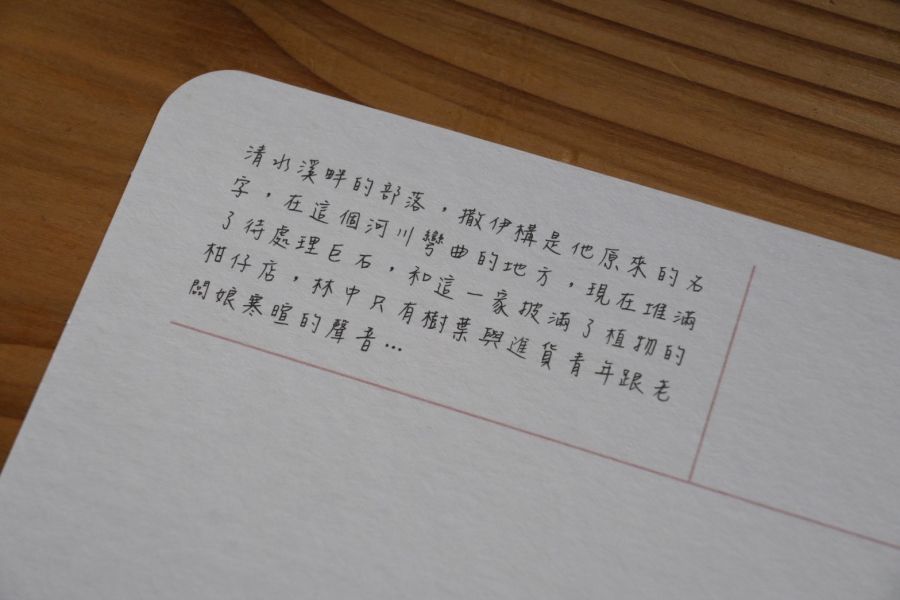 清水溪畔的部落，撒伊構是他原來的名
字，在這個河川彎曲的地方，現在堆滿
了待處理巨石，和這一家披滿了植物的
柑仔店，林中只有樹葉與進貨青年跟老
闆娘寒暄的聲音…